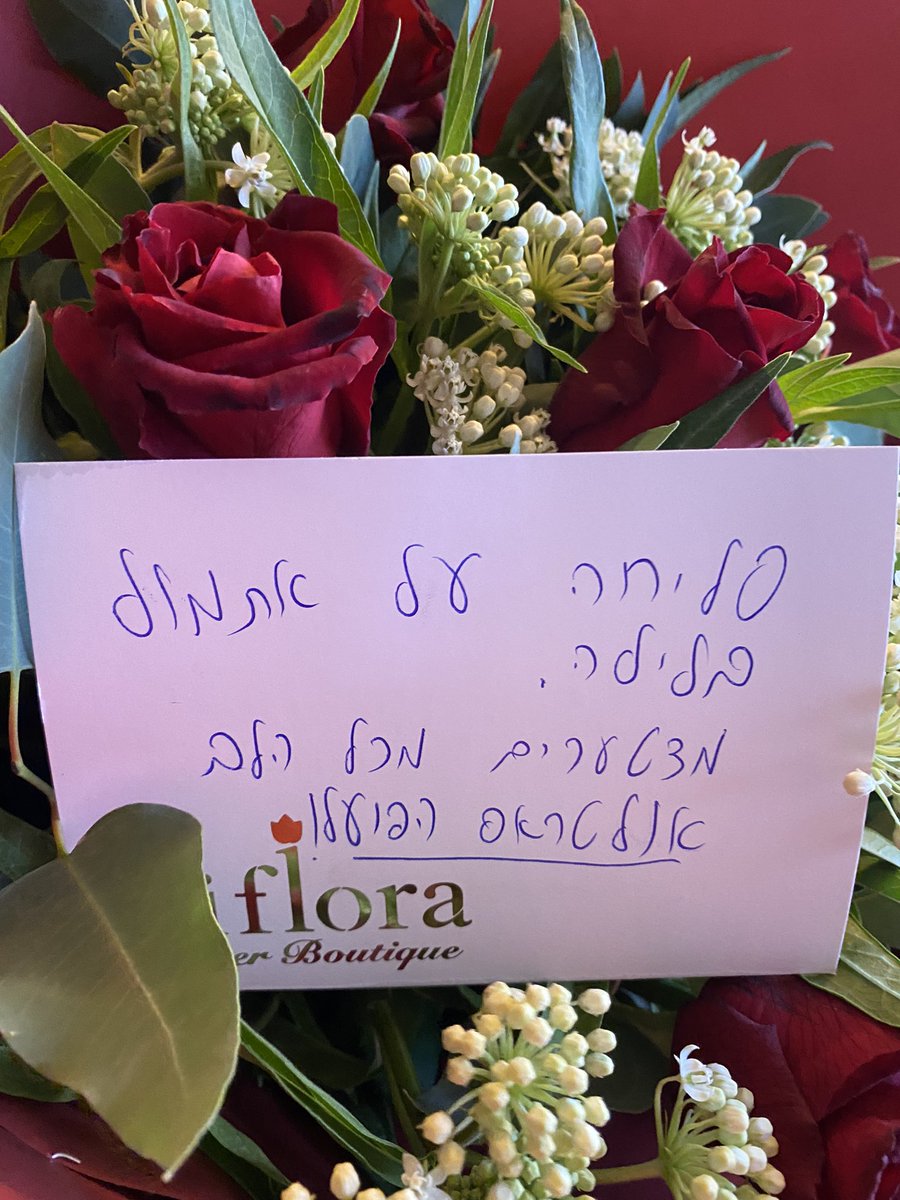 סליחה על אתמול
בלילה.
מצטערים מכל הלב
אולטראס הפועל!
iflora
er Boutique